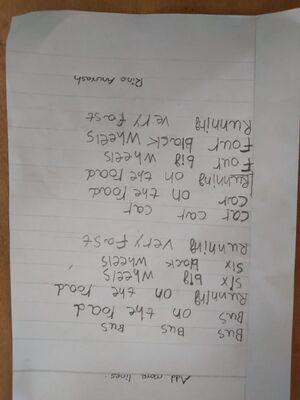 Add more lines:
Bus Bus Bus
Bus on the road
Running on the road
Six big wheels
Six black wheels
Running very fast
Car car car
Car on the road
Running on the road
Four big wheels
Four black wheels
Running very fast